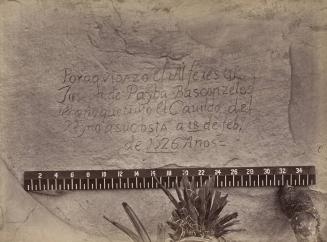 Por aqui paso el Alferes Dn
Joseph de Payba Basconzelos
el año que trujo el Cauildo del
Reyno a su costa a 18 de feb,
de 1726 Años
2 4 6 8 10 12 14 16 18 20 22 24 26 28 30 32 34